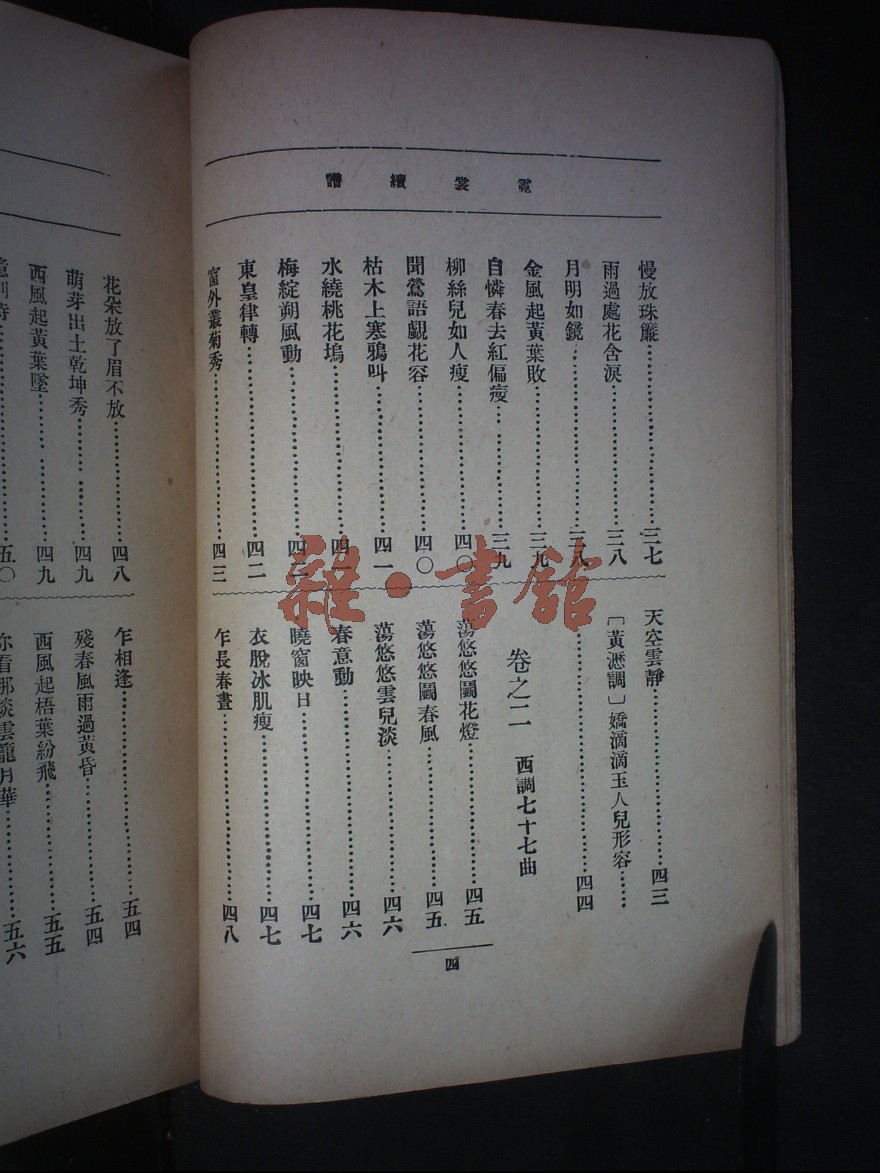 霓裳續譜
慢放珠簾……三七
雨過處花含淚……三八
月明如鏡……三八
金風起黃葉敗……三九
自憐春去紅偏瘦……三九
柳絲兒如人瘦……四〇
聞鶯語覷花容……四〇
枯木上寒鴉叫……四一
水繞桃花塢……四一
梅綻朔風動……四二
東皇律轉……四二
窗外叢菊秀……四三
天空雲靜……四三
〔黃瀝調〕嬌滴滴玉人兒形容……
……四四
卷之二 西調七十七曲
蕩悠悠鬧花燈……四五
蕩悠悠鬧春風……四五
蕩悠悠雲兒淡……四六
春意動……四六
曉窗映日……四七
衣脫冰肌瘦……四七
乍長春晝……四八
四
花朵放了眉不放……四八
萌芽出土乾坤秀……四九
西風起黃葉墜……四九
……五〇
乍相逢……五四
殘春風雨過黃昏……五四
西風起梧葉紛飛……五五
你看那淡雲籠月華……五六
雜·書館